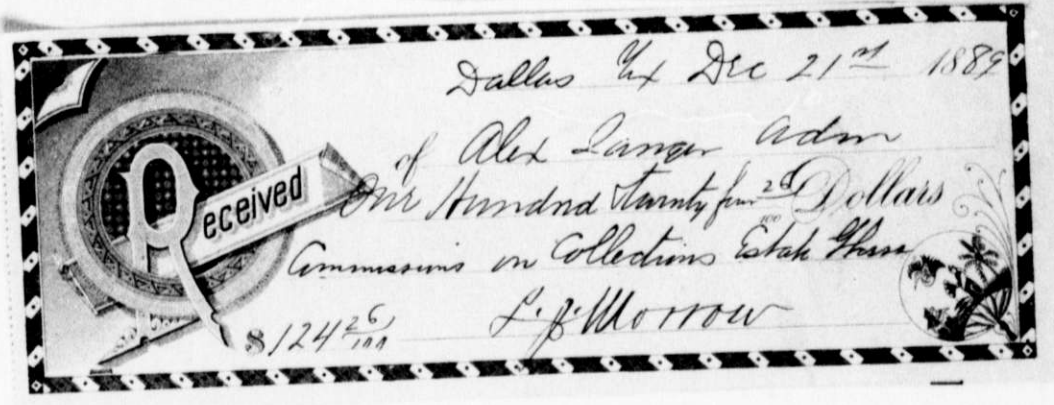 Dallas Tex Dec 21st 1889
Received of Alex Sanger Adm
One Hundred Twenty four 26/100 Dollars
Commissions on Collections Estate
$124 26/100 L. J. Morrow